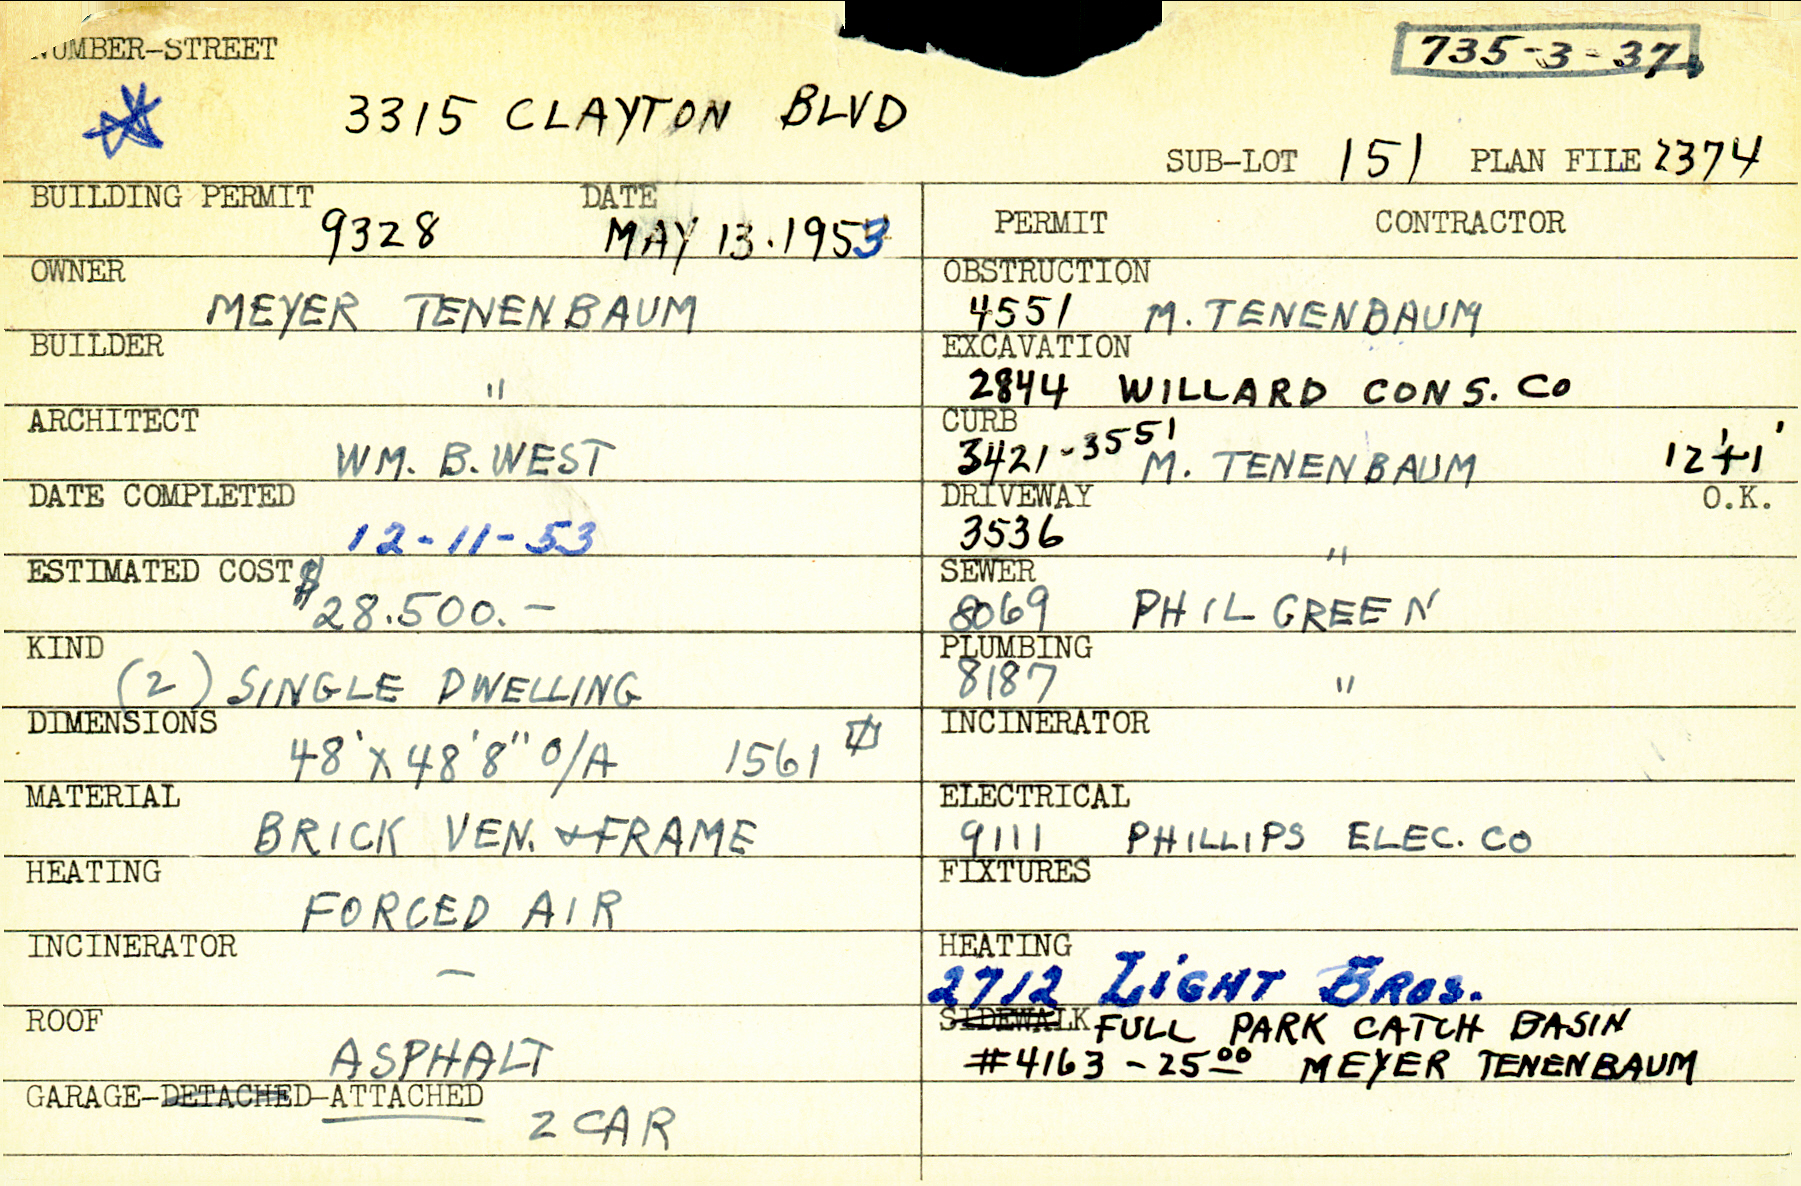 NUMBER-STREET
735-3-37
3315 CLAYTON BLVD
SUB-LOT 151 PLAN FILE 2374
BUILDING PERMIT DATE
9328 MAY 13.1953
PERMIT CONTRACTOR
OWNER
MEYER TENENBAUM
OBSTRUCTION
4551 M. TENENBAUM
BUILDER
"
EXCAVATION
2844 WILLARD CONS. CO
ARCHITECT
WM. B. WEST
CURB
3421-3551 M. TENENBAUM 12'+1'
DATE COMPLETED
12-11-53
DRIVEWAY O.K.
3536 "
ESTIMATED COST
$28.500.—
SEWER
8069 PHIL GREEN
KIND
(2) SINGLE DWELLING
PLUMBING
8187 "
DIMENSIONS
48' X 48'8" O/A 1561
INCINERATOR
MATERIAL
BRICK VEN. & FRAME
ELECTRICAL
9111 PHILLIPS ELEC. CO
HEATING
FORCED AIR
FIXTURES
INCINERATOR
—
HEATING
2712 LIGHT BROS.
ROOF
ASPHALT
SIDEWALK FULL PARK CATCH BASIN
#4163 - 2500 MEYER TENENBAUM
GARAGE-DETACHED-ATTACHED
2 CAR